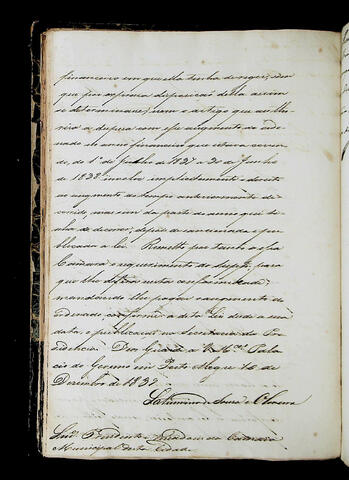 financeiro em que ella tinha de reger, sem
que por expressa disposição della assim
se determinasse; nem o artigo que au
a despesa com esse augmento de orde
nado no anno financeiro que estava corren
do, de 1º de Julho de 1837 a 30 de Junho
de 1838 involve implicitamente o direito
augmento do tempo anteriormente de
corrido mas sim da parte do anno que ti
nha de correr, depois de sanccionada e pu
blicada a Lei. Remetto por tanto a essa
Camara o requerimento do para
que lhe defira nesta conformidade,
mandando lhe pagar o augmento do
ordenado conforme a data da
data e publicação na Secretaria da Pre
sidencia. Deos Guarde a Vmces. Pala
cio do Governo em Porto Alegre 12 de
Dezembro de 1839.
Saturnino de Souza e Oliveira
Snrs. Presidente e Vereadores da Camara
Municipal desta Cidade